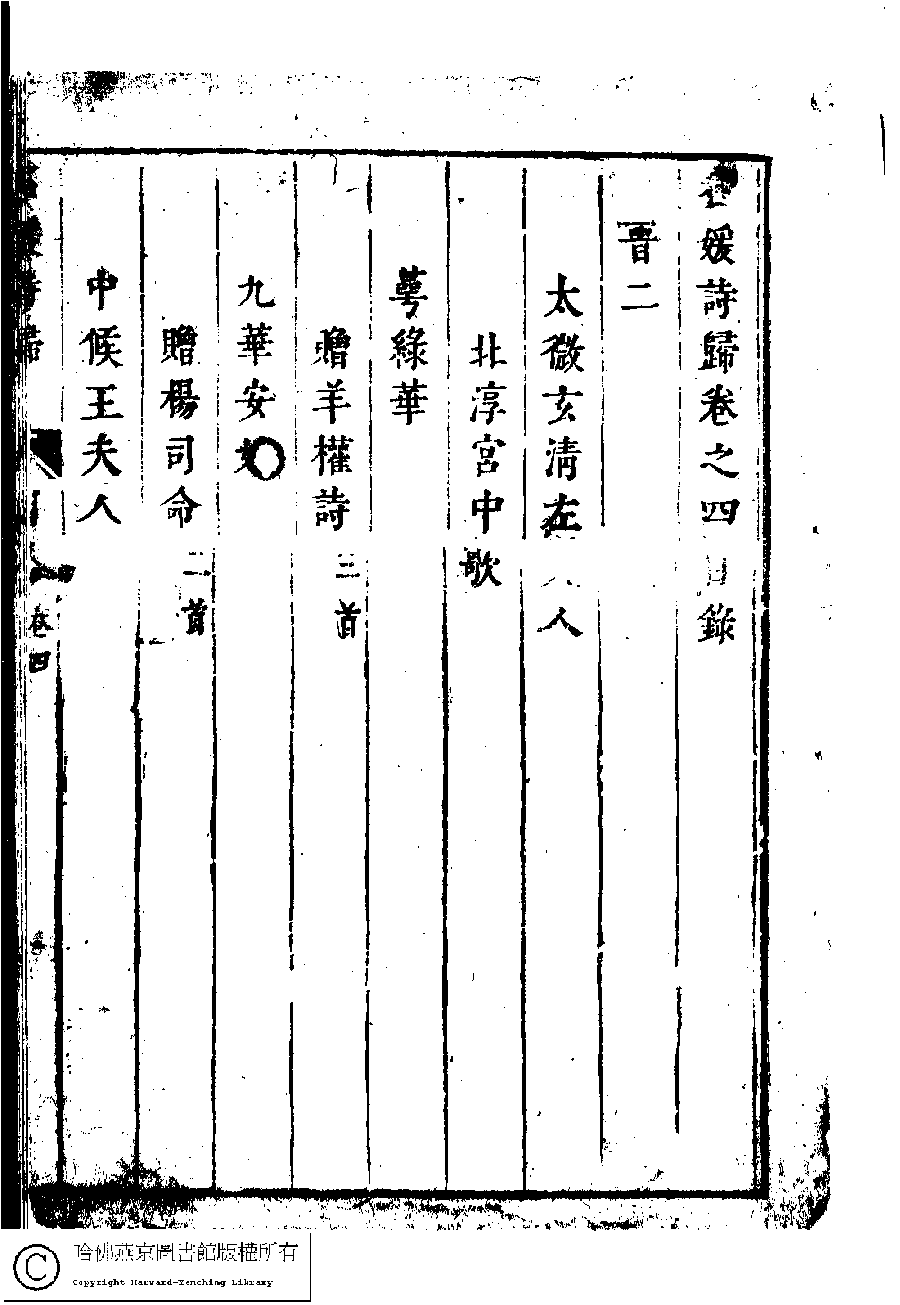 名媛詩歸卷之四目錄
晋二
太微玄清左夫人
北渟宮中歌
蕚綠華
贈羊權詩 三首
九華安妃
贈楊司命 二首
中候王夫人
詩歸 卷四
哈佛燕京圖書館版權所有
Copyright Harvard-Yenching Library